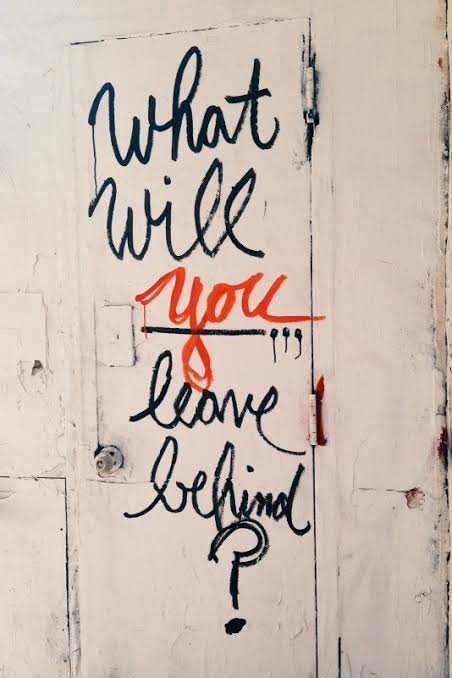 What
will
you
leave
behind
?